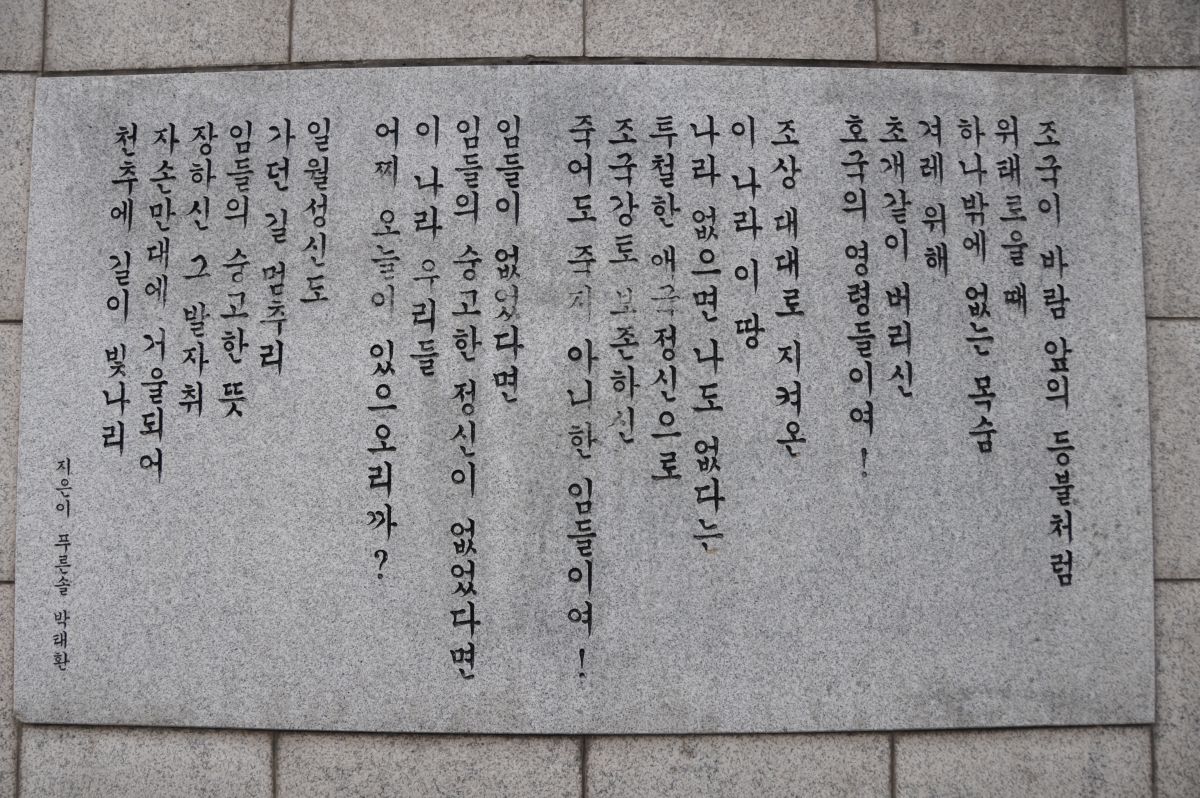 조국이 바람 앞의 등불처럼
위태로울 때
하나밖에 없는 목숨
겨레 위해
초개같이 버리신
호국의 영령들이여!
조상 대대로 지켜온
이 나라 이 땅
나라 없으면 나도 없다는
투철한 애국정신으로
조국강토 보존하신
죽어도 죽지 아니한 임들이여!
임들이 없었다면
임들의 숭고한 정신이 없었다면
이 나라 우리들
어찌 오늘이 있으오리까?
일월성신도
가던 길 멈추리
임들의 숭고한 뜻
장하신 그 발자취
자손만대에 거울되어
천추에 길이 빛나리
지은이 푸른솔 박태환